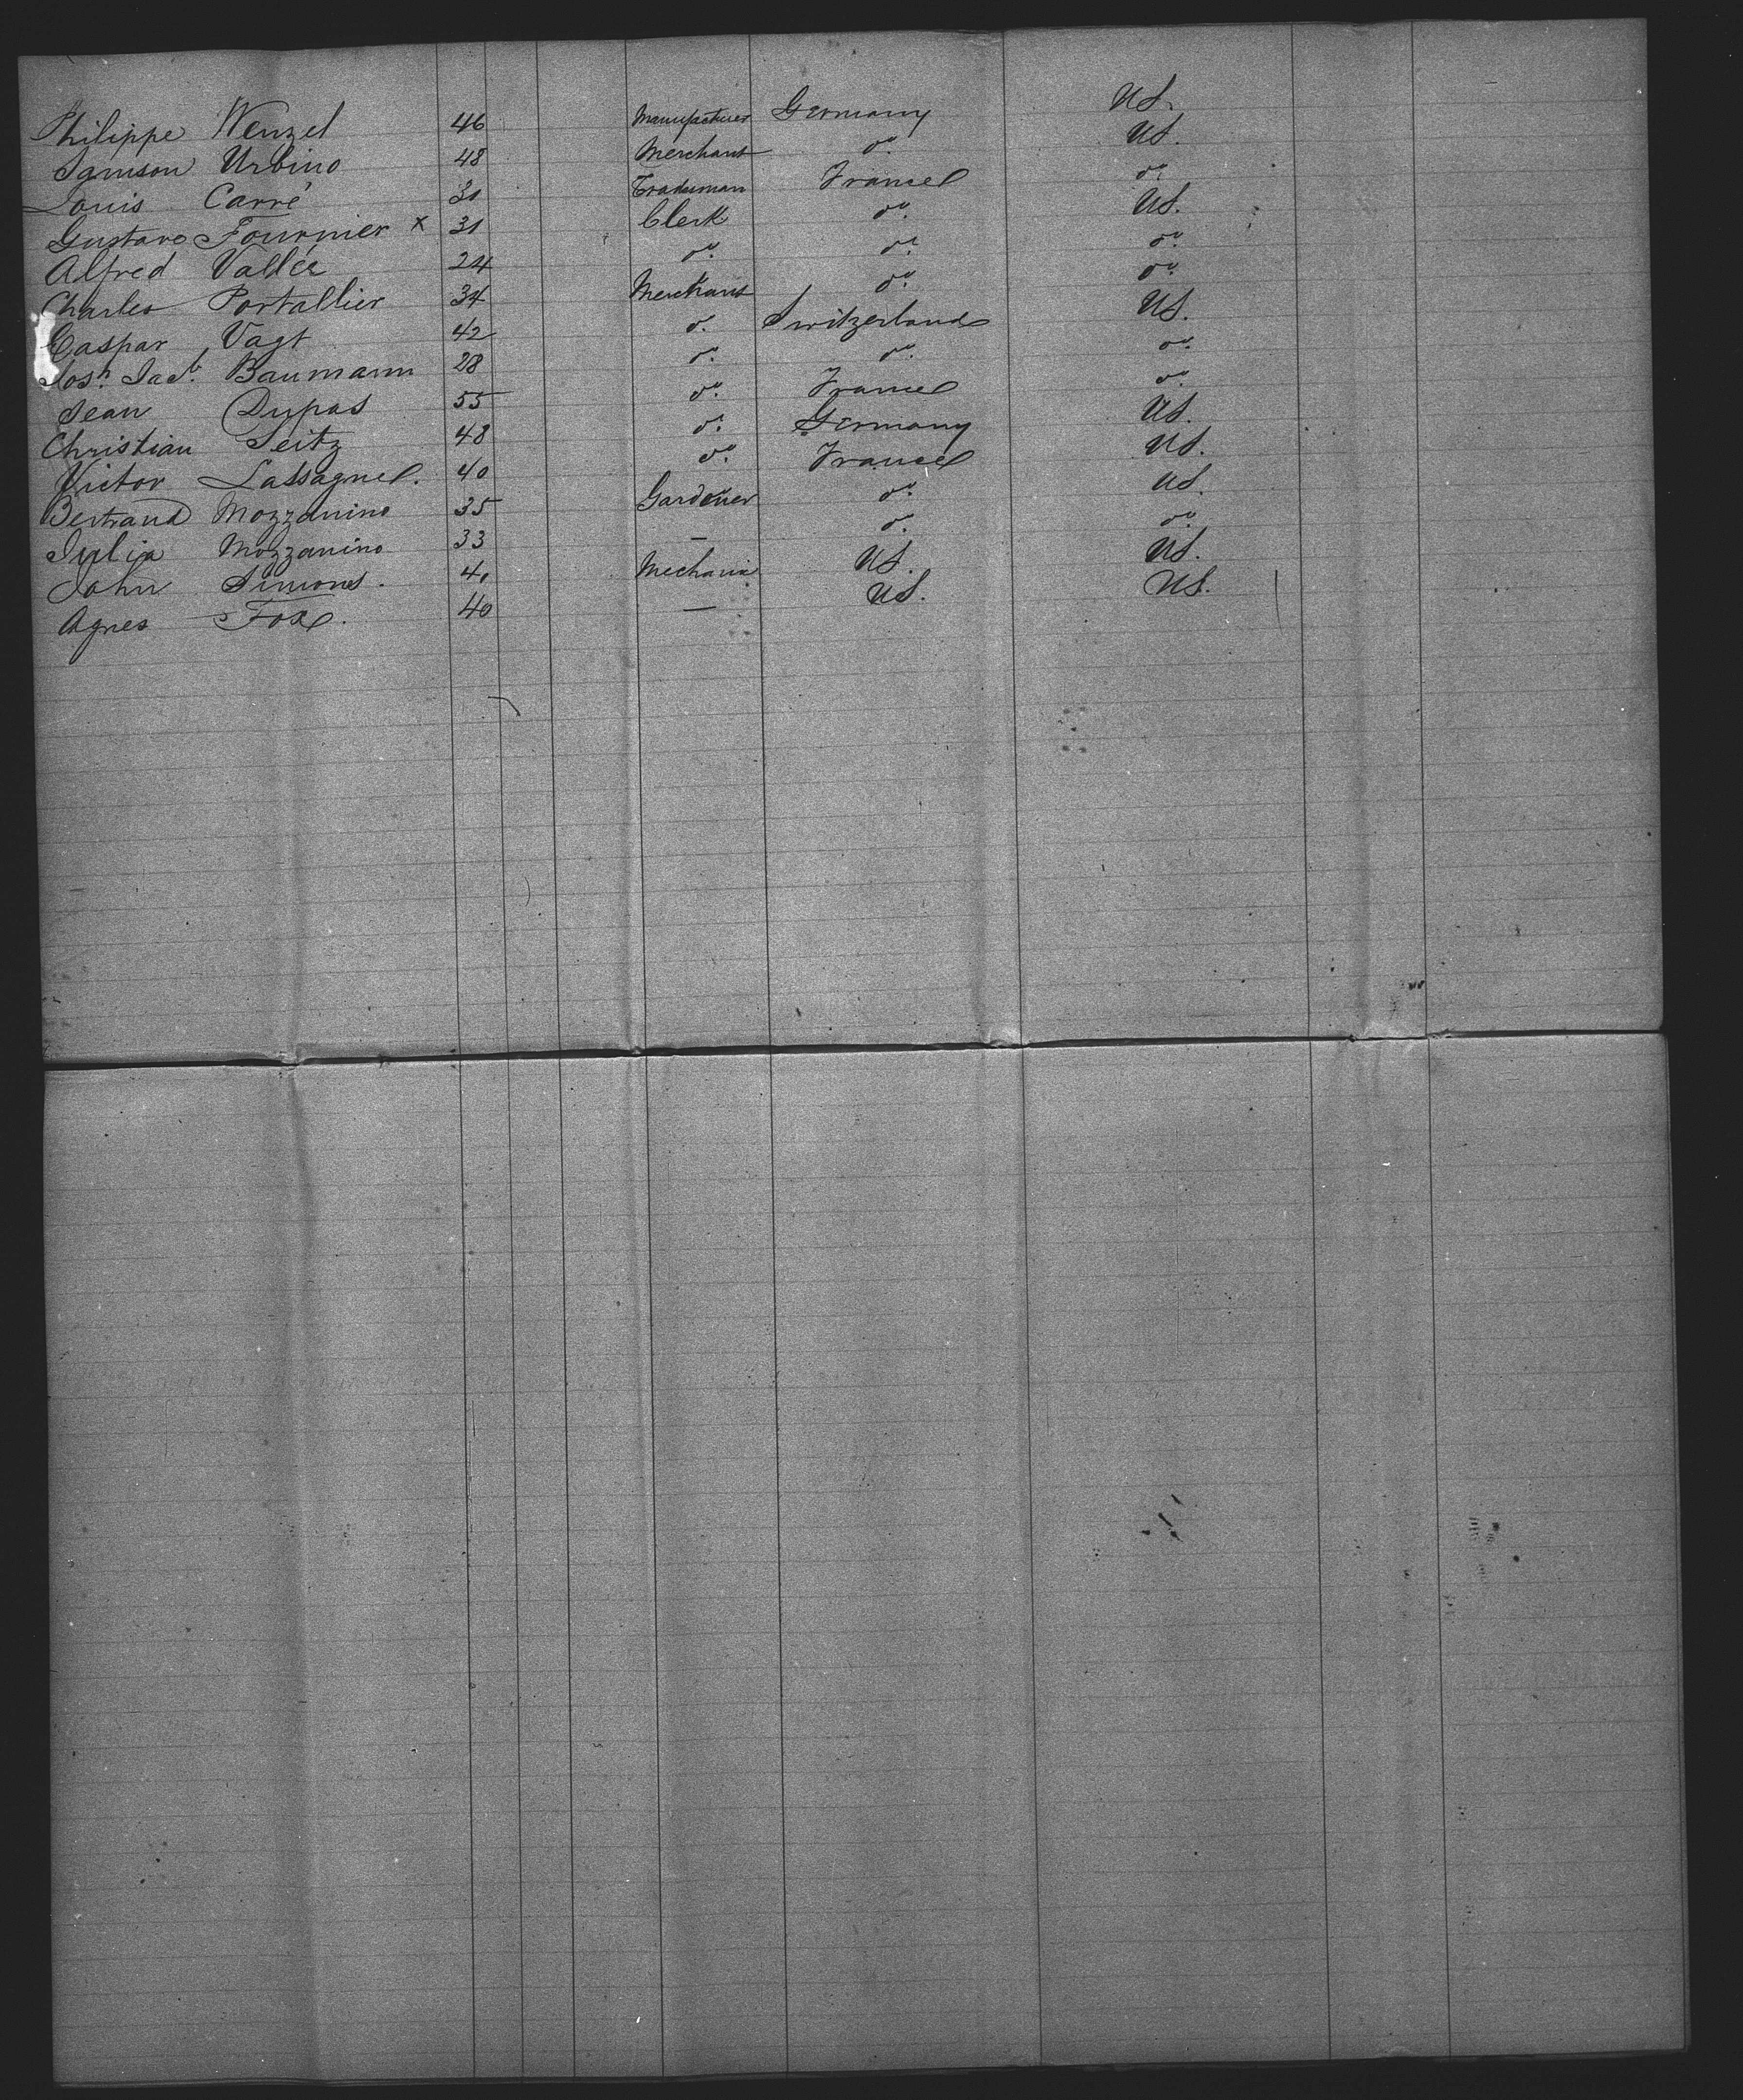 Philippe Wenzel 46 Manufacturer Germany US.
Samson Urbino 48 Merchant do. US.
Louis Carré 30 Tradesman France do.
Gustave Fournier x 31 Clerk do. US.
Alfred Vallée 24 do. do. do.
Charles Portallier 34 Merchant do. do.
Caspar Vagt 42 do. Switzerland US.
Josh. Jacb. Baumann 28 do. do. do.
Jean Dupas 55 do. France do.
Christian Seitz 48 do. Germany US.
Victor Lassagne. 40 do. France US.
Bertrand Mozzanino 35 Gardener do. US.
Julia Mozzanino 33 — do. do.
John Simons. 40 Mechanic US. US.
Agnes Fox. 40 — US. US.